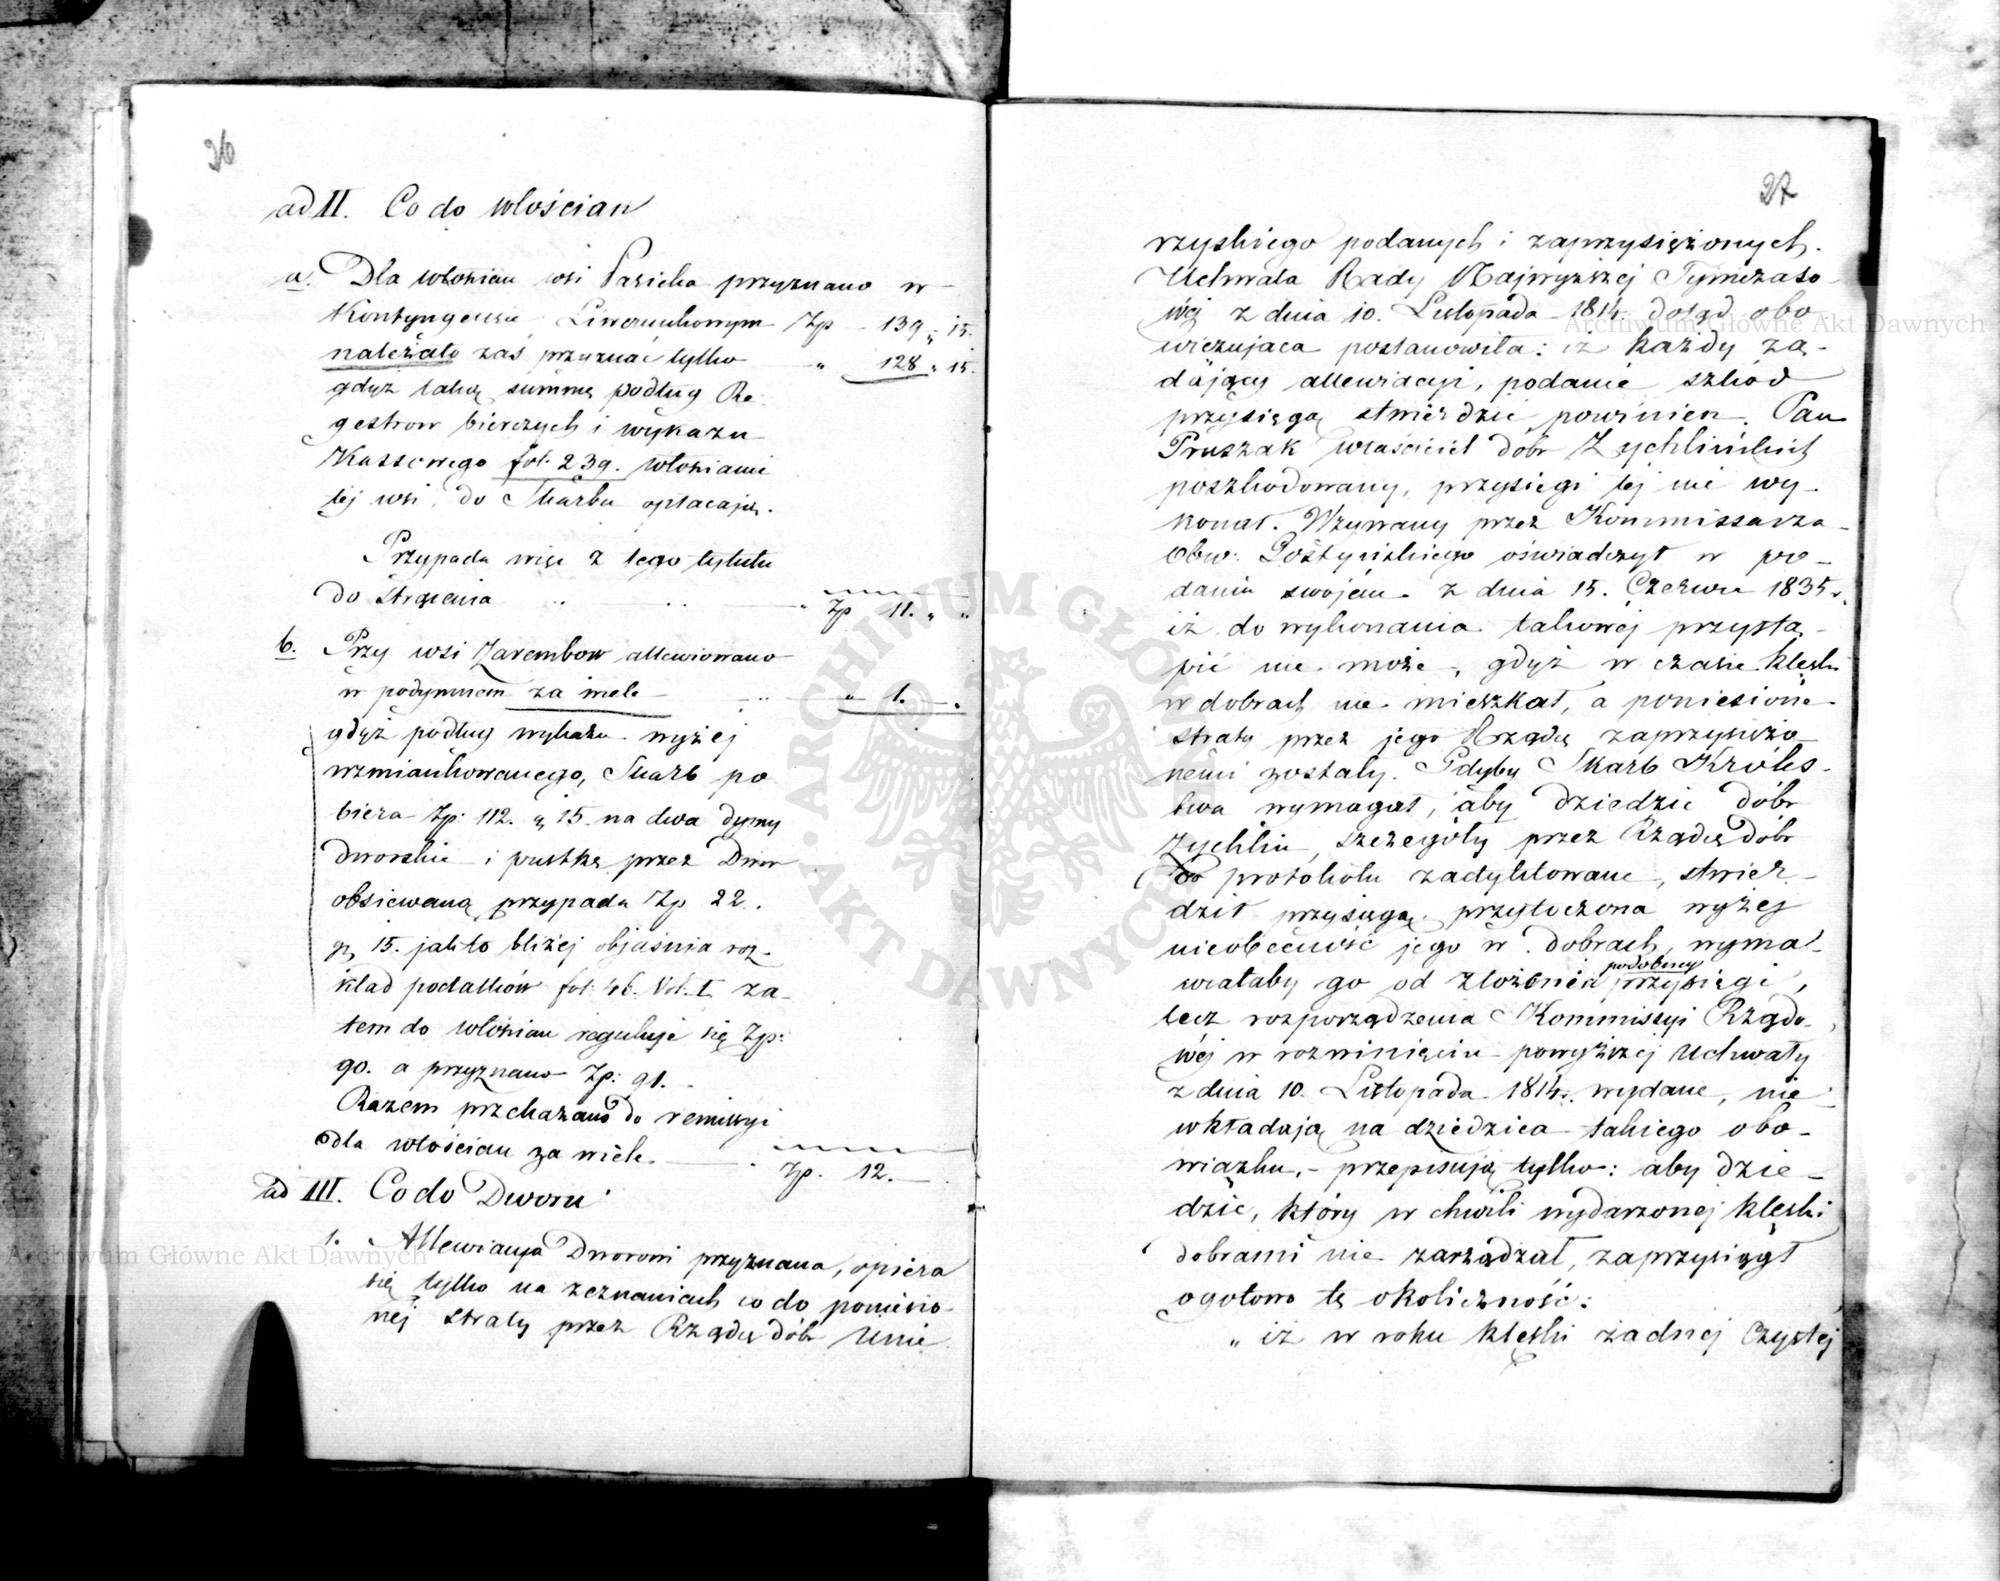 26
ad II. Co do włościan
a. Dla włościan wsi Pasieka przyznano w
Kontyngensie Liwerunkowym Zp 139 „ 15.
należało zaś przyznać tylko „ 128 „ 15.
gdyż taką summę podług Re-
gestrow bierczych i wykazu
Kassowego fol. 239. włościanie
tej wsi do Skarbu opłacają.
Przypada więc z tego tytułu
do strącenia Zp 11. „ „
b. Przy wsi Zarembow allewiowano
w podymnem za wiele „ 1. —
gdyż podług wykazu wyżej
wzmiankowanego, Skarb po
biera Zp: 112. gr 15. na dwa dymy
dworskie i pustkę przez Dwor
obsiewaną przypada Zp 22.
gr 15. jak to bliżej objaśnia roz-
kład podatków fol: 46. Vol. I. za-
tem do włościan reguluje się Zp:
90. a przyznano Zp: 91. –
Razem przekazano do remissyi
dla włościan za wiele Zp. 12. —
ad III. Co do Dworu
1. Allewiacya Dworowi przyznana, opiera
się tylko na zeznaniach co do poniesio-
nej straty przez Rządcę dóbr Unie
27
rzyskiego podanych i zaprzysiężonych.
Uchwała Rady Najwyższej Tymczaso-
wéj z dnia 10. Listopada 1814. dotąd obo-
wiezująca postanowiła: iż każdy żą-
dający allewiacyi, podanie szkód
przysięgą stwierdzić powinien. Pan
Pruszak właściciel dóbr Zychlińskich
poszkodowany, przysięgi tej nie wy-
konał. Wzywany przez Kommissarza
Obw: Gostyńskiego oświadczył w po-
daniu swojém z dnia 15. Czerwca 1835 r.
iż do wykonania takowéj przystą-
pić nie może, gdyż w czasie klęski
w dobrach nie mieszkał, a poniesione
straty przez jego Rządcę zaprzysiężo
nemi zostały. Gdyby Skarb Króles-
twa wymagał, aby dziedzic dóbr
Zychlin, szczegóły przez Rządcę dóbr
do protokołu zadyktowane, stwier-
dził przysięgą, przytoczona wyżej
nieobecność jego w dobrach, wyma-
wiałaby go od złożenia podobnej przysięgi,
lecz rozporządzenia Kommissyi Rządo-
wéj w rozwinięciu powyższej Uchwały
z dnia 10. Listopada 1814 r. wydane, nie
wkładają na dziedzica takiego obo-
wiązku, – przepisują tylko: aby dzie-
dzic, który w chwili wydarzonej klęski
dobrami nie zarządzał, zaprzysiągł
ogołowo tę okoliczność:
„ iż w roku klęski żadnej czystej
Archiwum Główne Akt Dawnych
Archiwum Główne Akt Dawnych
ARCHIWUM GŁÓWNE AKT DAWNYCH